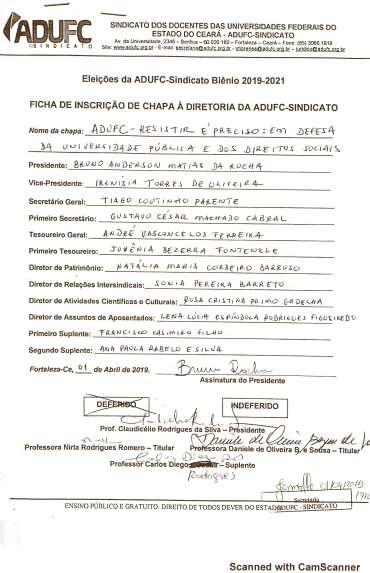 ADUFC
SINDICATO
SINDICATO DOS DOCENTES DAS UNIVERSIDADES FEDERAIS DO
ESTADO DO CEARÁ - ADUFC - SINDICATO
Av. da Universidade, 2346 – Benfica – 60.020.180 – Fortaleza – Ceará – Fone: (85) 3066 1818
Site: www.adufc.org.br - E-mail: secretaria@adufc.org.br
Eleições da ADUFC-Sindicato Biênio 2019-2021
FICHA DE INSCRIÇÃO DE CHAPA À DIRETORIA DA ADUFC-SINDICATO
Nome da chapa: ADUFC - RESISTIR É PRECISO: EM DEFESA
DA UNIVERSIDADE PÚBLICA E DOS DIREITOS SOCIAIS
Presidente: BRUNO ANDERSON MATIAS DA ROCHA
Vice-Presidente: IRENÍSIA TORRES DE OLIVEIRA
Secretário Geral: TIAGO COUTINHO PARENTE
Primeiro Secretário: GUSTAVO CÉSAR MACHADO CABRAL
Tesoureiro Geral: ANDRÉ VASCONCELOS FERREIRA
Primeiro Tesoureiro: JUVÊNIA BEZERRA FONTENELE
Diretor de Patrimônio: NATÁLIA MARIA CORDEIRO BARROSO
Diretor de Relações Intersindicais: SONIA PEREIRA BARRETO
Diretor de Atividades Científicas e Culturais: ROSA CRISTINA PRIMO GADELHA
Diretor de Assuntos de Aposentados: LENA LÚCIA ESPÍNDOLA RODRIGUES FIGUEIREDO
Primeiro Suplente: FRANCISCO CASIMIRO FILHO
Segundo Suplente: ANA PAULA RABELO E SILVA
Fortaleza-Ce, 01 de Abril de 2019. Bruno Rocha
Assinatura do Presidente
DEFERIDO INDEFERIDO
Prof. Claudicélio Rodrigues da Silva – Presidente
Professora Nirla Rodrigues Romero – Titular Professora Daniele de Oliveira B. e Sousa – Titular
Professor Carlos Diego – Suplente
Rodrigues
01/04/2019
Secretaria
ADUFC - SINDICATO
ENSINO PÚBLICO E GRATUITO: DIREITO DE TODOS DEVER DO ESTADO
Scanned with CamScanner